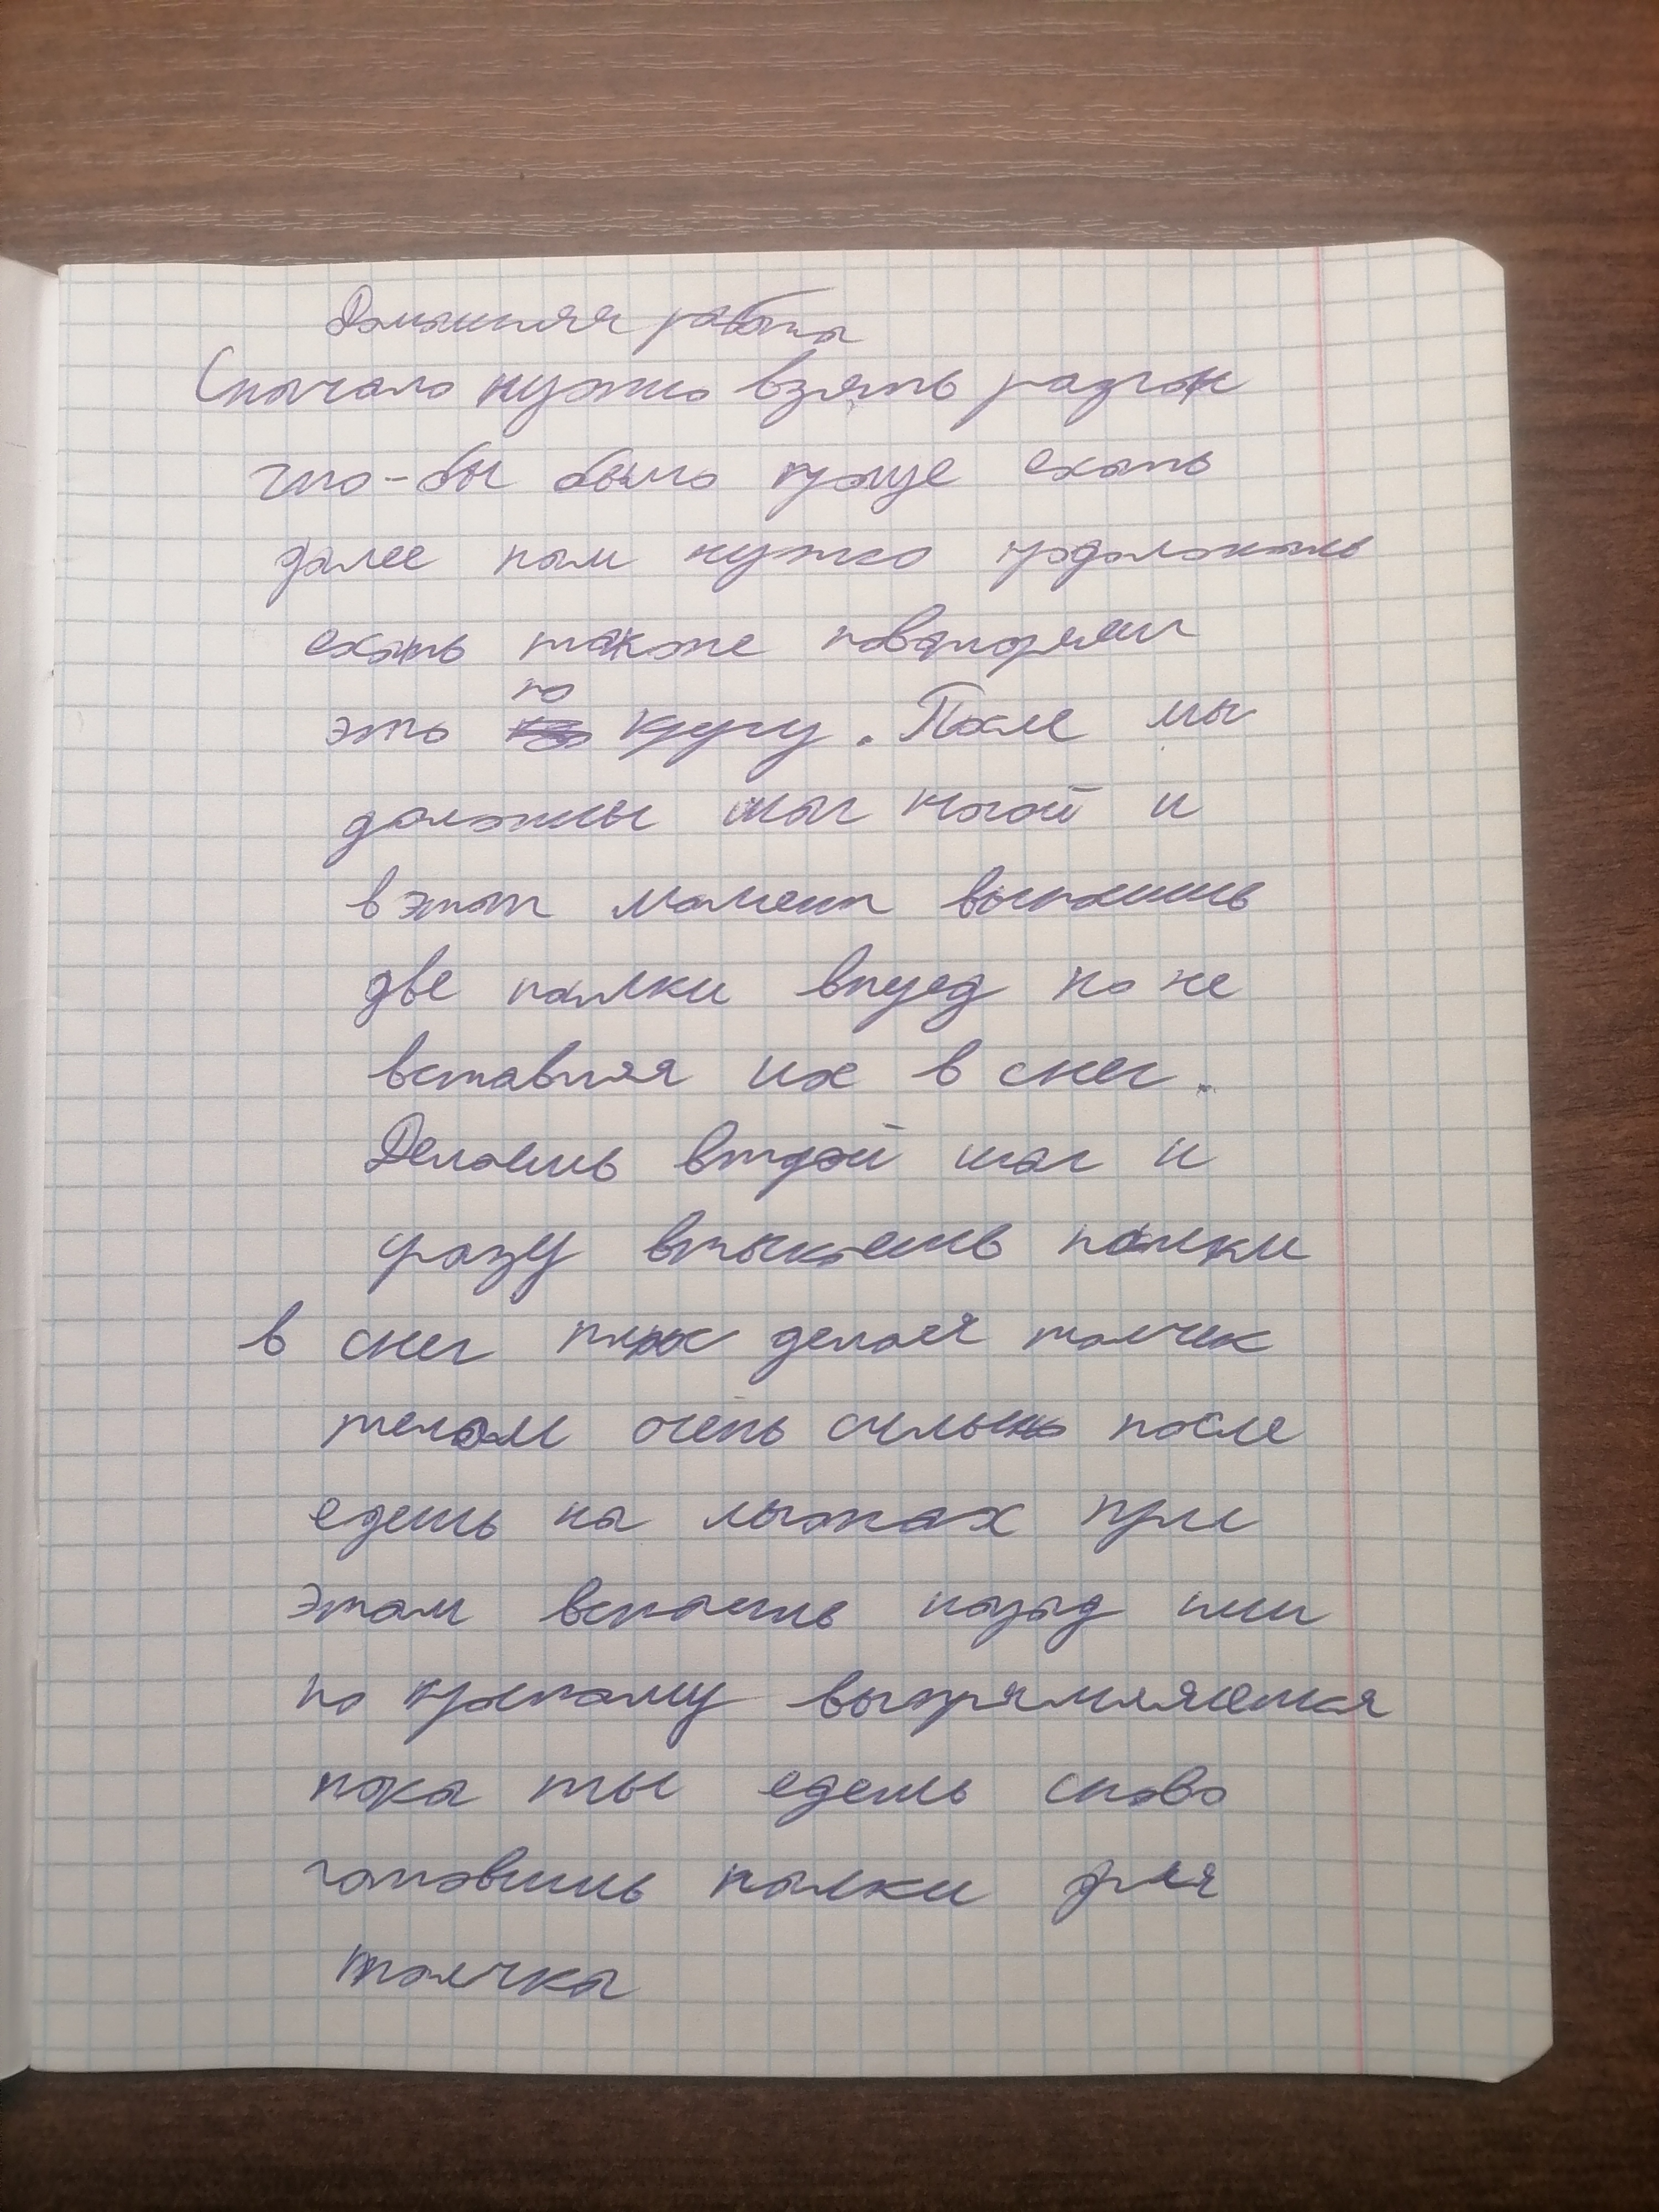 Домашняя работа
Сначало нужно взять разгон
что-бы было проще ехать
далее нам нужно продолжать
ехать также повторяем
это по кругу. После мы
должны шаг ногой и
в этот момент выносишь
две палки вперед но не
вставляя их в снег.
Делаешь второй шаг и
сразу втыкаешь палки
в снег делая толчек
телом очень сильно после
едешь на лыжах при
этом назад или
по выпрямляешся
пока ты едешь снова
готовишь палки для
толчка